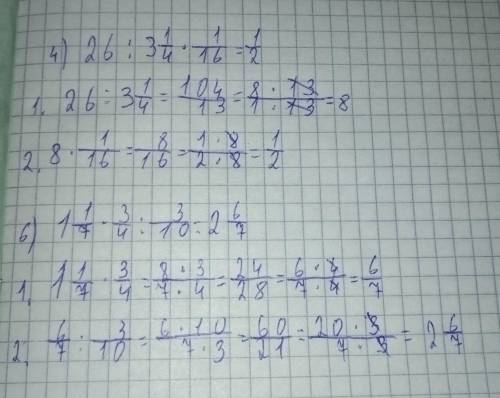 4) 26 : 3 1/4 · 1/16 = 1/2
1. 26 ÷ 3 1/4 = 104/13 = 8 · 13/1 · 13 = 8
2. 8 · 1/16 = 8/16 = 1 · 8/2 · 8 = 1/2
6) 1 1/7 · 3/4 : 3/10 = 2 6/7
1. 1 1/7 · 3/4 = 8 · 3/7 · 4 = 24/28 = 6 · 4/7 · 4 = 6/7
2. 6/7 : 3/10 = 6 · 10/7 · 3 = 60/21 = 20 · 3/7 · 3 = 2 6/7